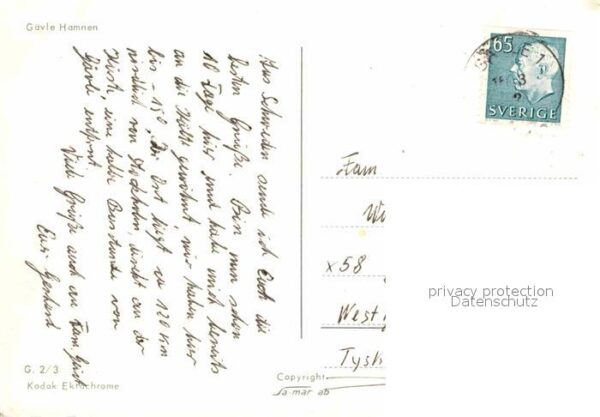 Gävle Hamnen
Aus Schweden sende ich Euch die
besten Grüße. Bin nun schon
10 Tage hier und habe mich bereits
an die Kälte gewöhnt wir haben hier
bis -15°. Der Ort liegt ca 120 km
nördlich von Stockholm, direkt an der
Küste, eine halbe Busstunde von
Gävle entfernt.
Viele Grüße auch an Fam.
Euer Gerhard
G. 2/3
Kodak Ektachrome
Copyright
Sa-mär ab
65
SVERIGE
GÄVLE 1
Fam
W
x 58
West
Tysk
privacy protection
Datenschutz